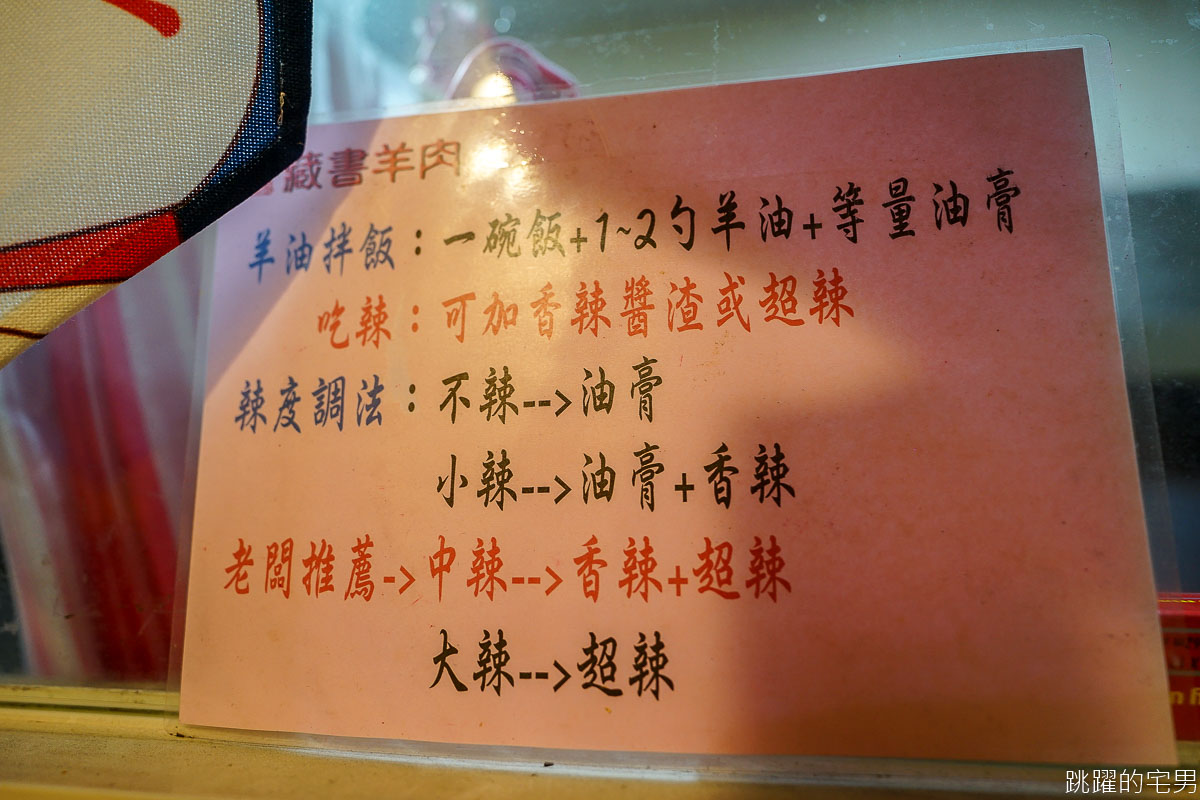 藏書羊肉
羊油拌飯：一碗飯+1~2勺羊油+等量油膏
吃辣：可加香辣醬渣或超辣
辣度調法：不辣-->油膏
小辣-->油膏+香辣
老闆推薦->中辣-->香辣+超辣
大辣-->超辣
跳躍的宅男